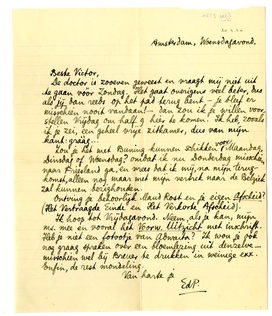 Amsterdam, Woensdagavond.
Beste Victor,
De doctor is zooeven geweest en vraagt mij niet uit
te gaan vóór Zondag. Het gaat overigens veel beter, dus
als jij dan reeds op het pad terug bent - je bleef er
misschien nooit vandaan! - dan zou ik je willen voor-
stellen Vrijdag om half 9 hier te komen. Ik heb, zooals
ik je zei, een geheel vrije zitkamer, dus van mijn
kant: graag...
Zou je het met Buning kunnen schikken voor Maandag,
Dinsdag of Woensdag? omdat ik nu Donderdag misschien
naar Friesland ga, en vrees dat ik mij, na mijn terug-
komst, allen nog maar met mijn vertrek naar de België
zal kunnen bezighouden.
Ontving je behoorlijk Maud Rost en je eigen Afscheid?
(Het Vertraagde Einde en Het Verkorte Afscheid).
Ik hoop tot Vrijdagavond. Neem, als je kan, mijn
ms. mee en vooral het Voorw. Uitzicht met inschrift.
Heb je niet een fotootje van Advaita? Ik wou je ook
nog graag spreken over een bloemlezing uit denzelve -
misschien wel bij Breuer te drukken in weinige exx.
Enfin, de rest mondeling.
Van harte je
EdP.